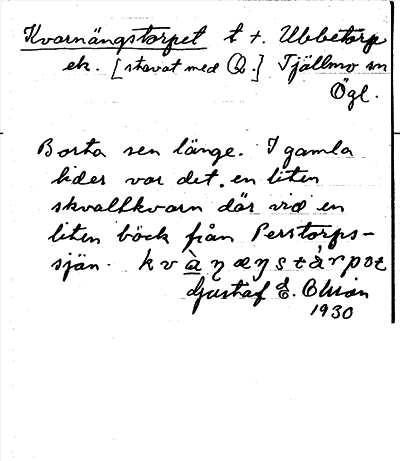 Kvarnängstorpet t t. Ubbetorp
ek. [stavat med Q.] Tjällmo sn
Ögl.
Borta sen länge. I gamla
tider var det en liten
skvaltkvarn där vid en
liten bäck från Perstorps-
sjön. kvàŋæŋstårpət
Gustaf E. Olson
1930